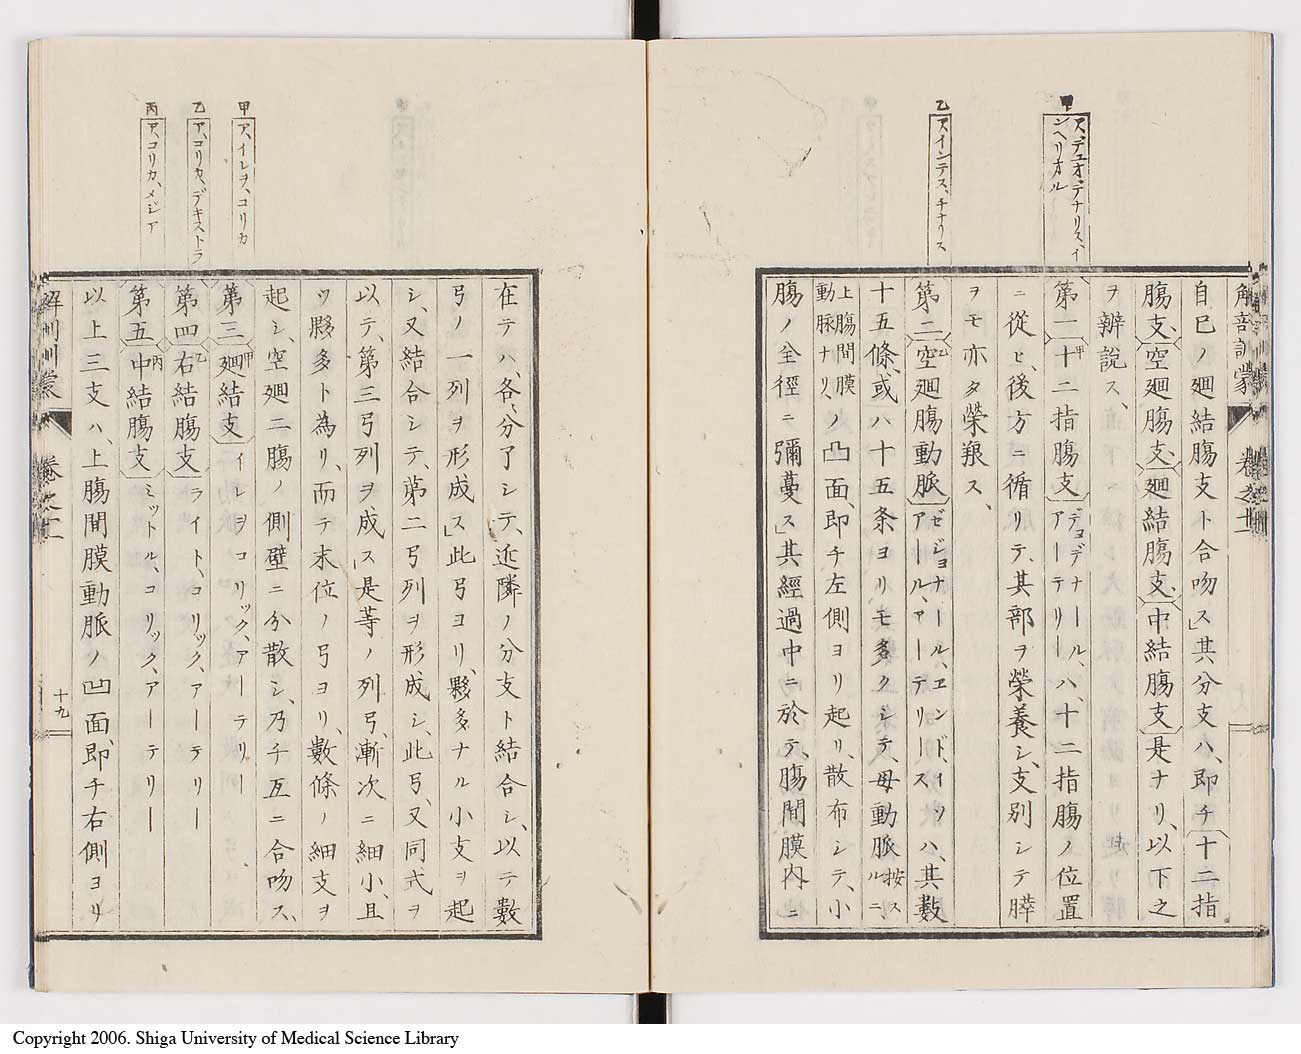 甲
ア、デュオ、デナリス、イ
ンヘリオル
乙
ア、インテス、チナリス
解剖訓蒙
卷之十一
自已ノ廻結膓支ト合吻ス」其分支ハ、即チ十二指
膓支、空廻膓支、廻結膓支、中結膓支是ナリ、以下之
ヲ辨說ス、
第一甲十二指膓支デュヲデナール、アーテリーハ、十二指膓ノ位置
ニ從ヒ、後方ニ循リテ、其部ヲ榮養シ、支別シテ膵
ヲモ亦タ榮飬ス、
第二乙空廻膓動脈ゼジョナール、エンド、イツアール、アーテリースハ、其數
十五條、或ハ十五条ヨリモ多クシテ、母動脈按スルニ、
上膓間膜動脉ナリ、ノ凸面、即チ左側ヨリ起リ、散布シテ、小
膓ノ全徑ニ彌蔓ス」其經過中ニ於テ、膓間膜内ニ
甲
ア、イレヲ、コリカ
乙
ア、コリカ、デキストラ
丙
ア、コリカ、メジア
在テハ、各、分了シテ、近隣ノ分支ト結合シ、以テ數
弓ノ一列ヲ形成ス」此弓ヨリ、夥多ナル小支ヲ起
シ、又結合シテ、第二弓列ヲ形成シ、此弓、又同式ヲ
以テ、第三弓列ヲ成ス」是等ノ列弓、漸次ニ細小、且
ツ夥多ト為リ、而テ末位ノ弓ヨリ、數條ノ細支ヲ
起シ、空廻二膓ノ側壁ニ分散シ、乃チ互ニ合吻ス、
第三甲廻結支イレヲコリック、アーテリー
第四乙右結膓支ライト、コリック、アーテリー
第五丙中結膓支ミットル、コリック、アーテリー
以上三支ハ、上膓間膜動脈ノ凹面、即チ右側ヨリ
解剖訓蒙
卷之十一
十九
Copyright 2006. Shiga University of Medical Science Library